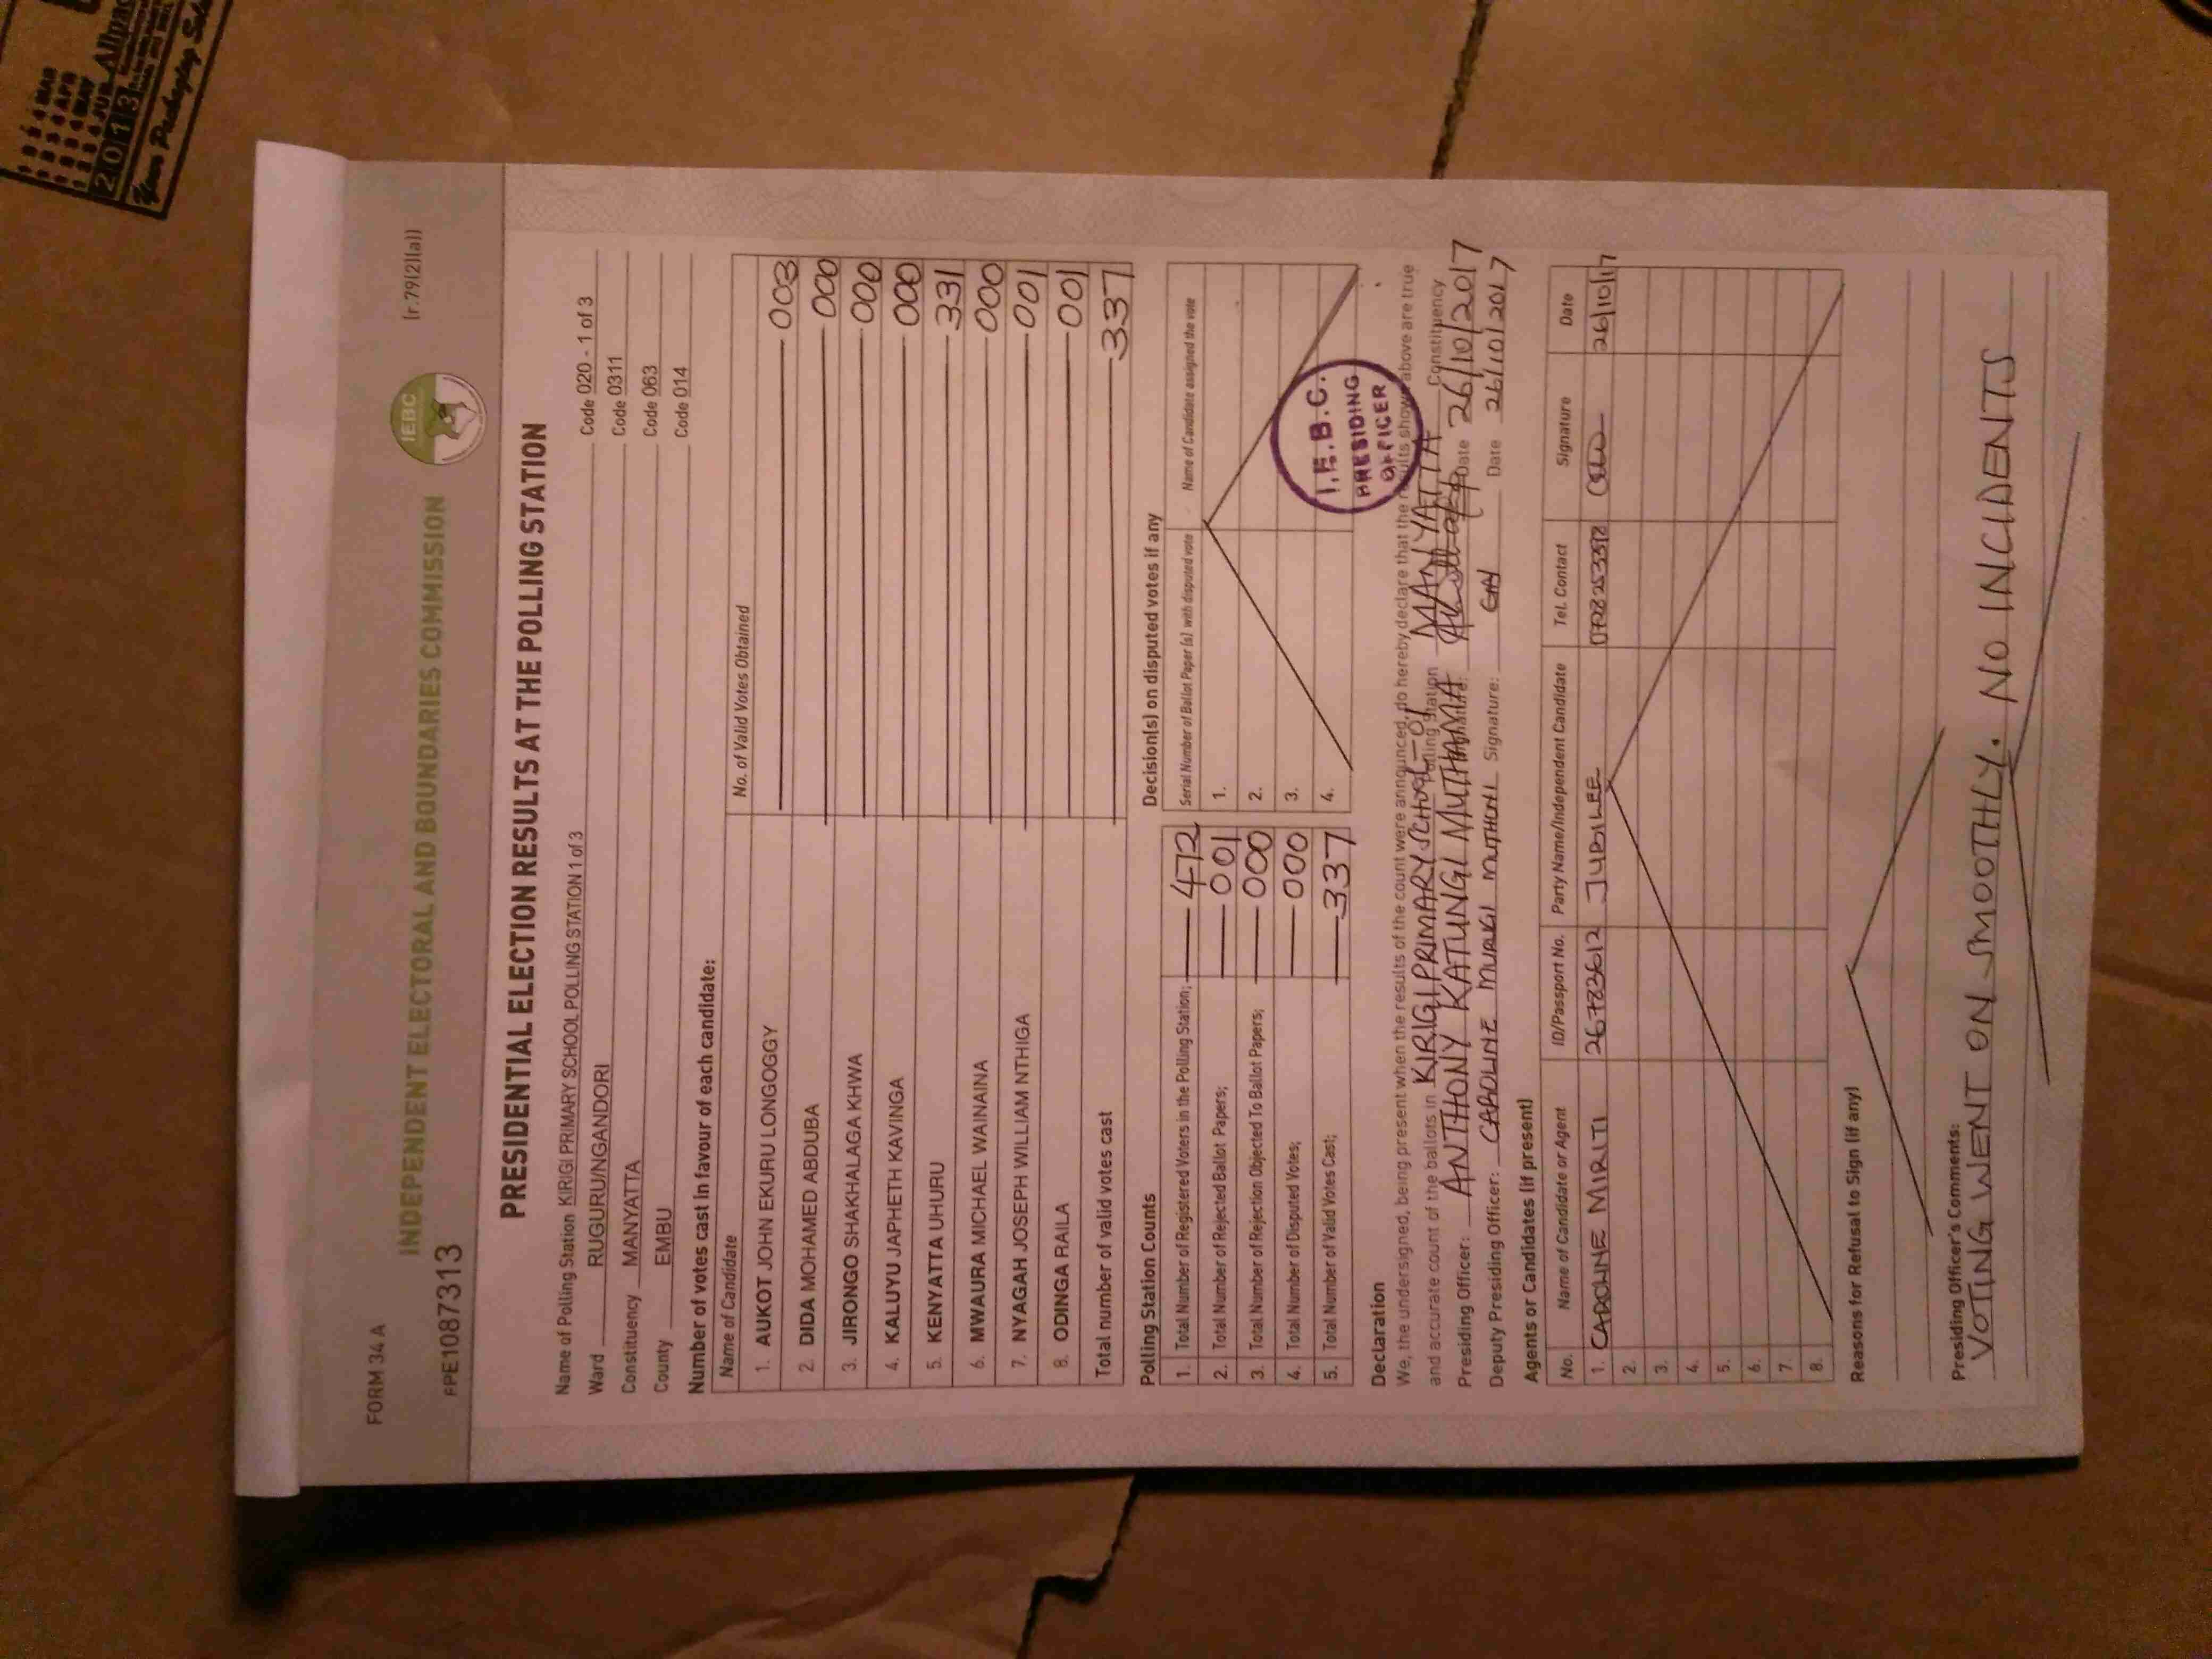 FORM 34 A
(r.79(2)(a))
INDEPENDENT ELECTORAL AND BOUNDARIES COMMISSION
IEBC
FPE1087313
PRESIDENTIAL ELECTION RESULTS AT THE POLLING STATION
Name of Polling Station KIRIGI PRIMARY SCHOOL POLLING STATION 1 of 3 Code 020 - 1 of 3
Ward RUGURU/NGANDORI Code 0311
Constituency MANYATTA Code 063
County EMBU Code 014
Number of votes cast in favour of each candidate:
Name of Candidate No. of Valid Votes Obtained
1. AUKOT JOHN EKURU LONGOGGY 003
2. DIDA MOHAMED ABDUBA 000
3. JIRONGO SHAKHALAGA KHWA 000
4. KALUYU JAPHETH KAVINGA 000
5. KENYATTA UHURU 331
6. MWAURA MICHAEL WAINAINA 000
7. NYAGAH JOSEPH WILLIAM NTHIGA 001
8. ODINGA RAILA 001
Total number of valid votes cast 337
Polling Station Counts
1. Total Number of Registered Voters in the Polling Station; 472
2. Total Number of Rejected Ballot Papers; 001
3. Total Number of Rejection Objected To Ballot Papers; 000
4. Total Number of Disputed Votes; 000
5. Total Number of Valid Votes Cast; 337
Decision(s) on disputed votes if any
Serial Number of Ballot Paper (s) with disputed vote Name of Candidate assigned the vote
1.
2.
3.
4.
I.E.B.C.
PRESIDING
OFFICER
Declaration
We, the undersigned, being present when the results of the count were announced, do hereby declare that the results shown above are true
and accurate count of the ballots in KIRIGI PRIMARY SCHOOL Polling Station MANYATTA Constituency
Presiding Officer: ANTHONY KATUNGI MUTHAMA Signature: Date 26/10/2017
Deputy Presiding Officer: CAROLINE MURUGI MUTHONI Signature: Date 26/10/2017
Agents or Candidates (if present)
No. Name of Candidate or Agent ID/Passport No. Party Name/Independent Candidate Tel. Contact Signature Date
1. CAROLINE MIRITI 26783612 JUBILEE 26/10/17
2.
3.
4.
5.
6.
7.
8.
Reasons for Refusal to Sign (if any)
Presiding Officer's Comments:
VOTING WENT ON SMOOTHLY. NO INCIDENTS
2013
Your Packaging